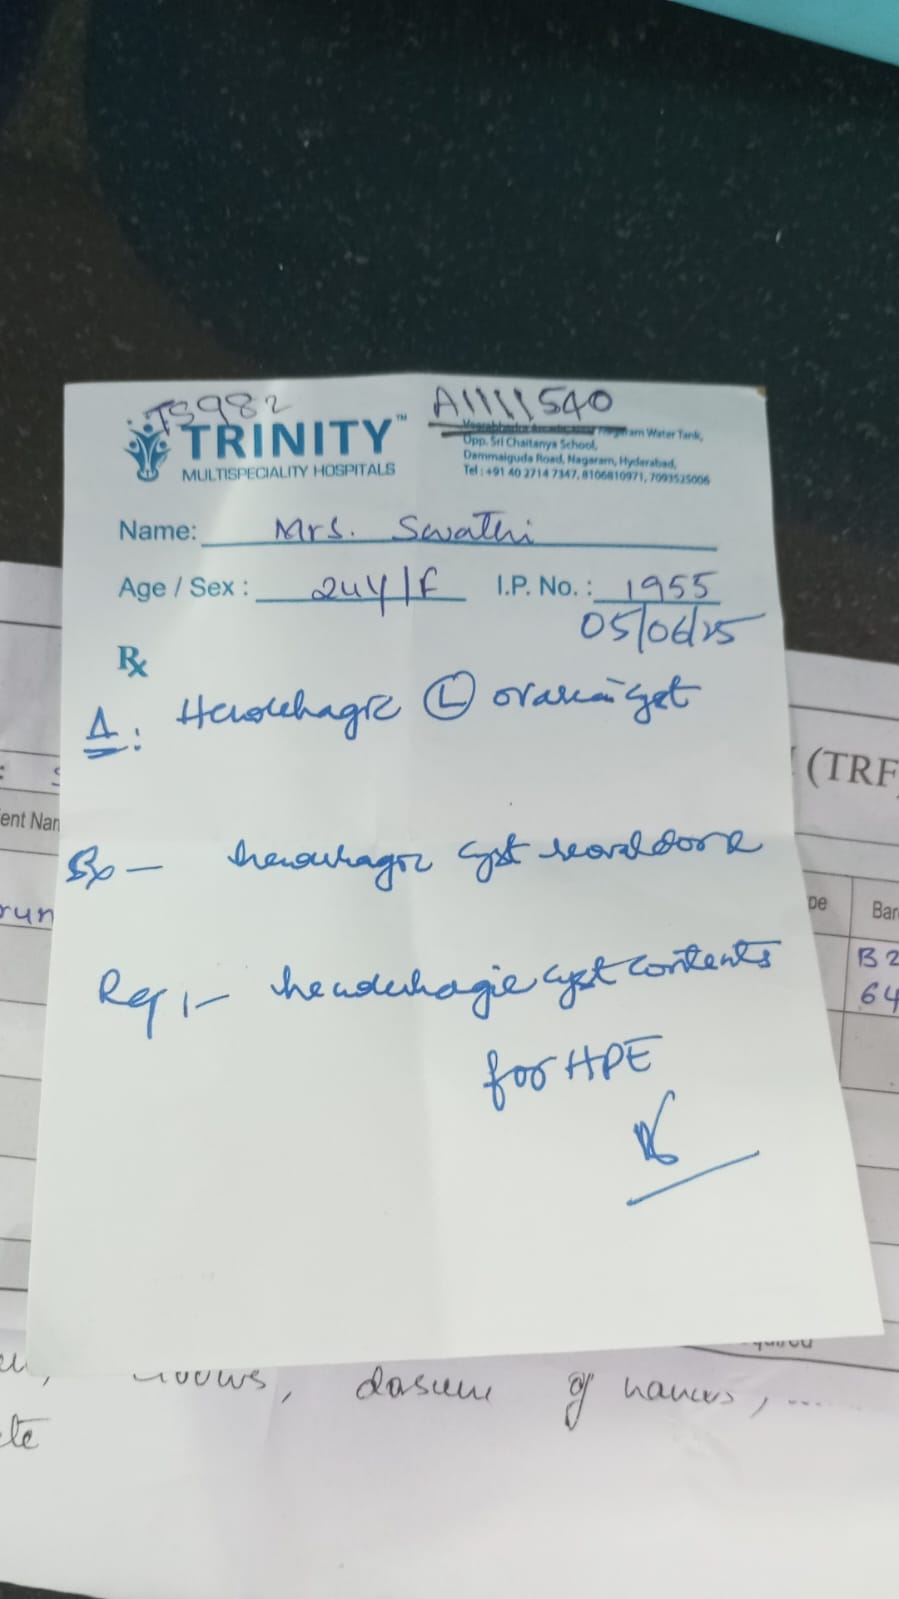 TS982
A1111540
TRINITY™
MULTISPECIALITY HOSPITALS
Water Tank,
Opp. Sri Chaitanya School,
Dammaiguda Road, Nagaram, Hyderabad,
Tel : +91 40 2714 7347, 8106810971, 7093525006
Name: Mrs. Swathi
Age / Sex : 24Y/F I.P. No. : 1955
05/06/25
Rx
Δ: Hemorrhagic Ⓛ ovarian cyst
hemorrhagic cyst done
Req :- hemorrhagic cyst contents
for HPE
(TRF
ent Nam
run
pe
Bar
B2
64
of nerves, .....